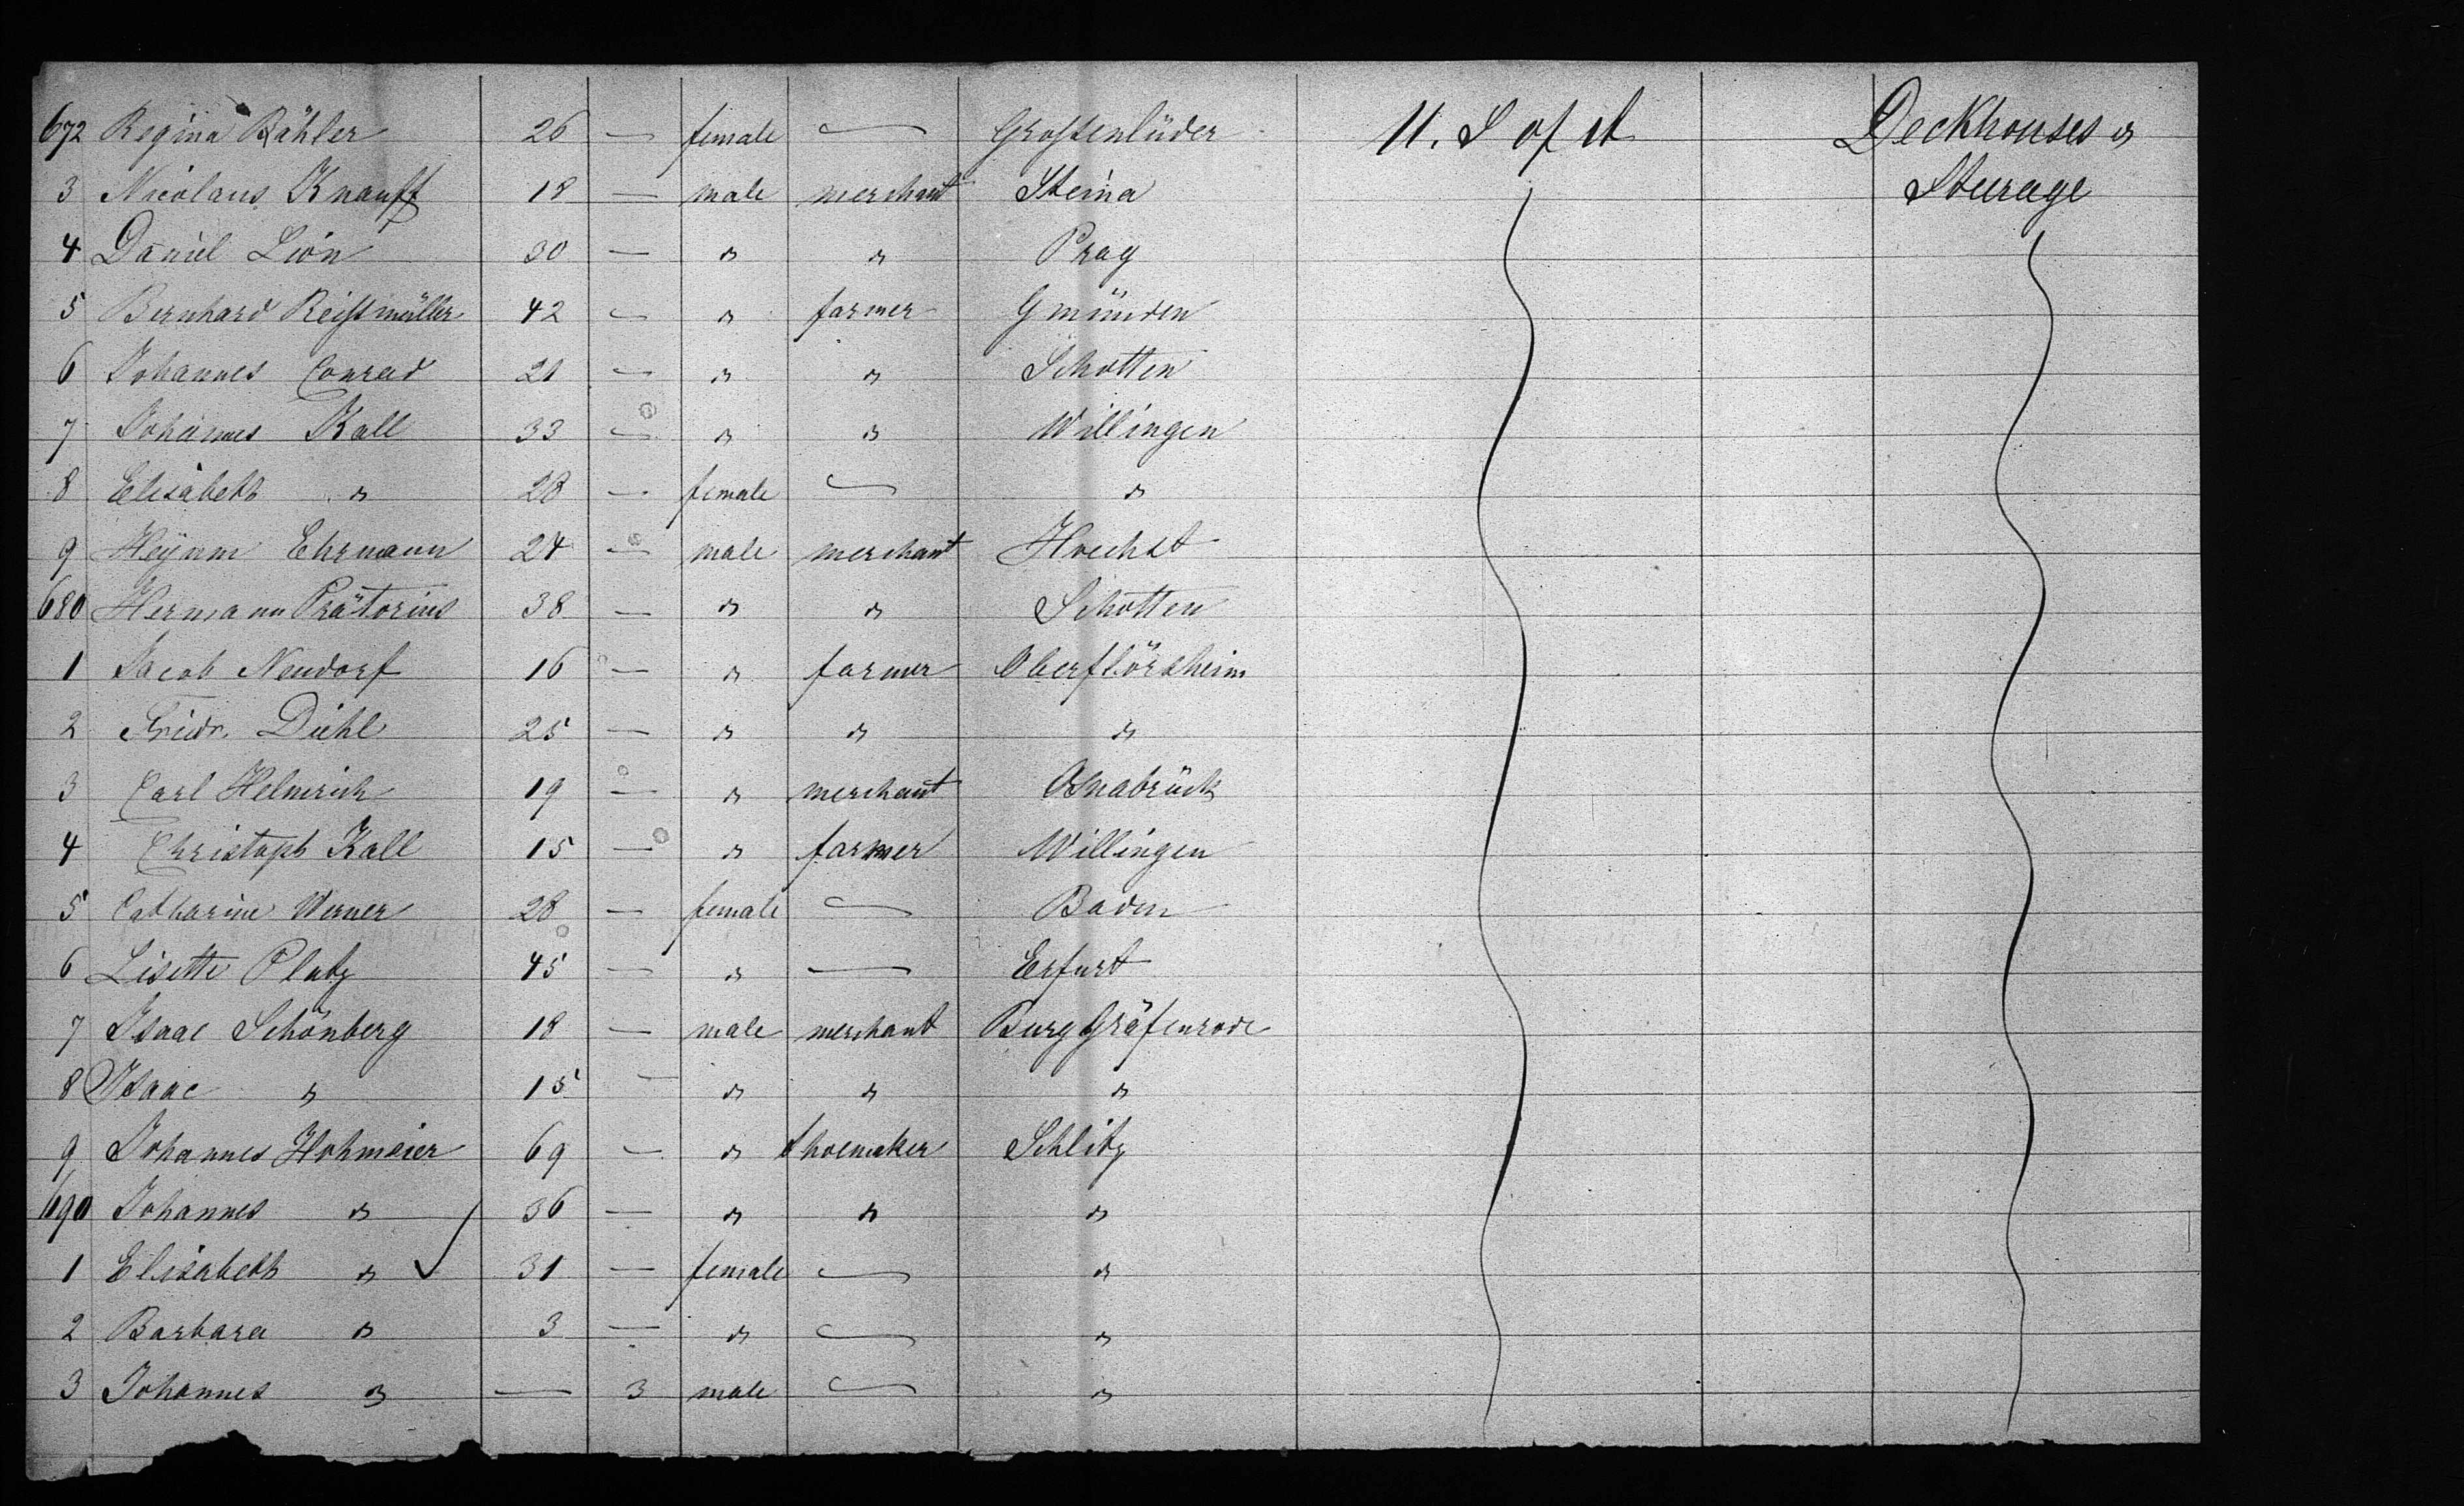 672 Regina Bähler 26 — female — Großenlüder U. S of A Deckhouses &
3 Nicolaus Knauff 18 — male merchant Steina Steerage
4 Daniel Lion 30 — " " Prag
5 Bernhard Reißmüller 42 — " farmer Gmünden
6 Johannes Conrad 21 — " " Schotten
7 Johannes Kall 33 — " " Willingen
8 Elisabeth " 28 — female — "
9 Heymn Ehrmann 24 — male merchant Hoechst
680 Hermann Prätorius 38 — " " Schotten
1 Jacob Neudorf 16 — " farmer Oberflörsheim
2 Friedr. Diehl 25 — " " "
3 Carl Helmrich 19 — " merchant Osnabrück
4 Christoph Kall 15 — " farmer Willingen
5 Catharine Werner 28 — female — Baden
6 Lisette Platz 45 — " — Erfurt
7 Isaac Schönberg 18 — male merchant Burg Gräfenrode
8 Isaac " 15 — " " "
9 Johannes Hohmeier 69 — " shoemaker Schlitz
690 Johannes " 36 — " " "
1 Elisabeth " ✓ 31 — female — "
2 Barbara " 3 — " — "
3 Johannes " — 3 male — "